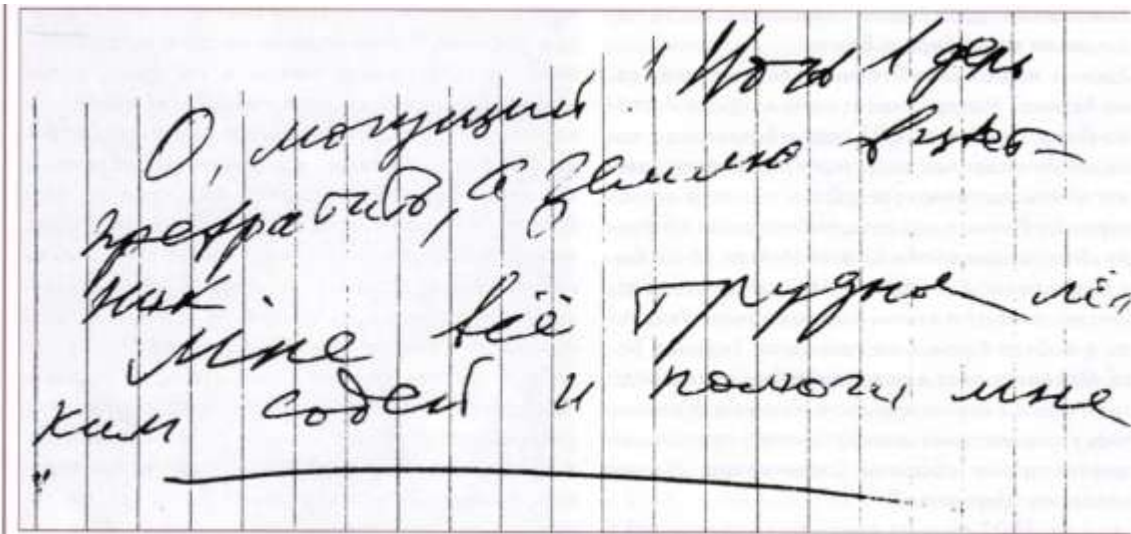 О, могущий Ночь в день
превратить, а землю в цвет-
ник.
Мне всё трудное лёг
ким содей и помоги мне